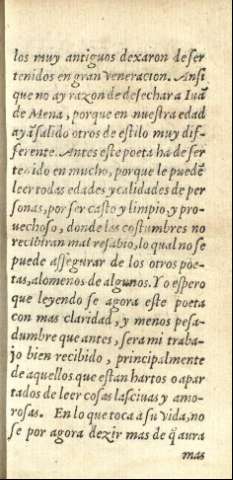 los muy antiguos dexaron de ser
tenidos en gran veneracion. Ansi
que no ay razon de desechar a Iuã
de Mena, porque en nuestra edad
ayã salido otros de estilo muy dif-
ferente. Antes este poeta ha de ser
tenido en mucho, porque le puedẽ
leer todas edades y calidades de per
sonas, por ser casto y limpio, y pro-
uechoso, donde las costumbres no
recibiran mal resabio, lo qual no se
puede assegurar de los otros poe-
tas, alomenos de algunos. Yo espero
que leyendo se agora este poeta
con mas claridad, y menos pesa-
dumbre que antes, sera mi traba-
jo bien recibido, principalmente
de aquellos que estan hartos o apar
tados de leer cosas lasciuas y amo-
rosas. En lo que toca à su vida, no
se por agora dezir mas de q̃ aura
mas